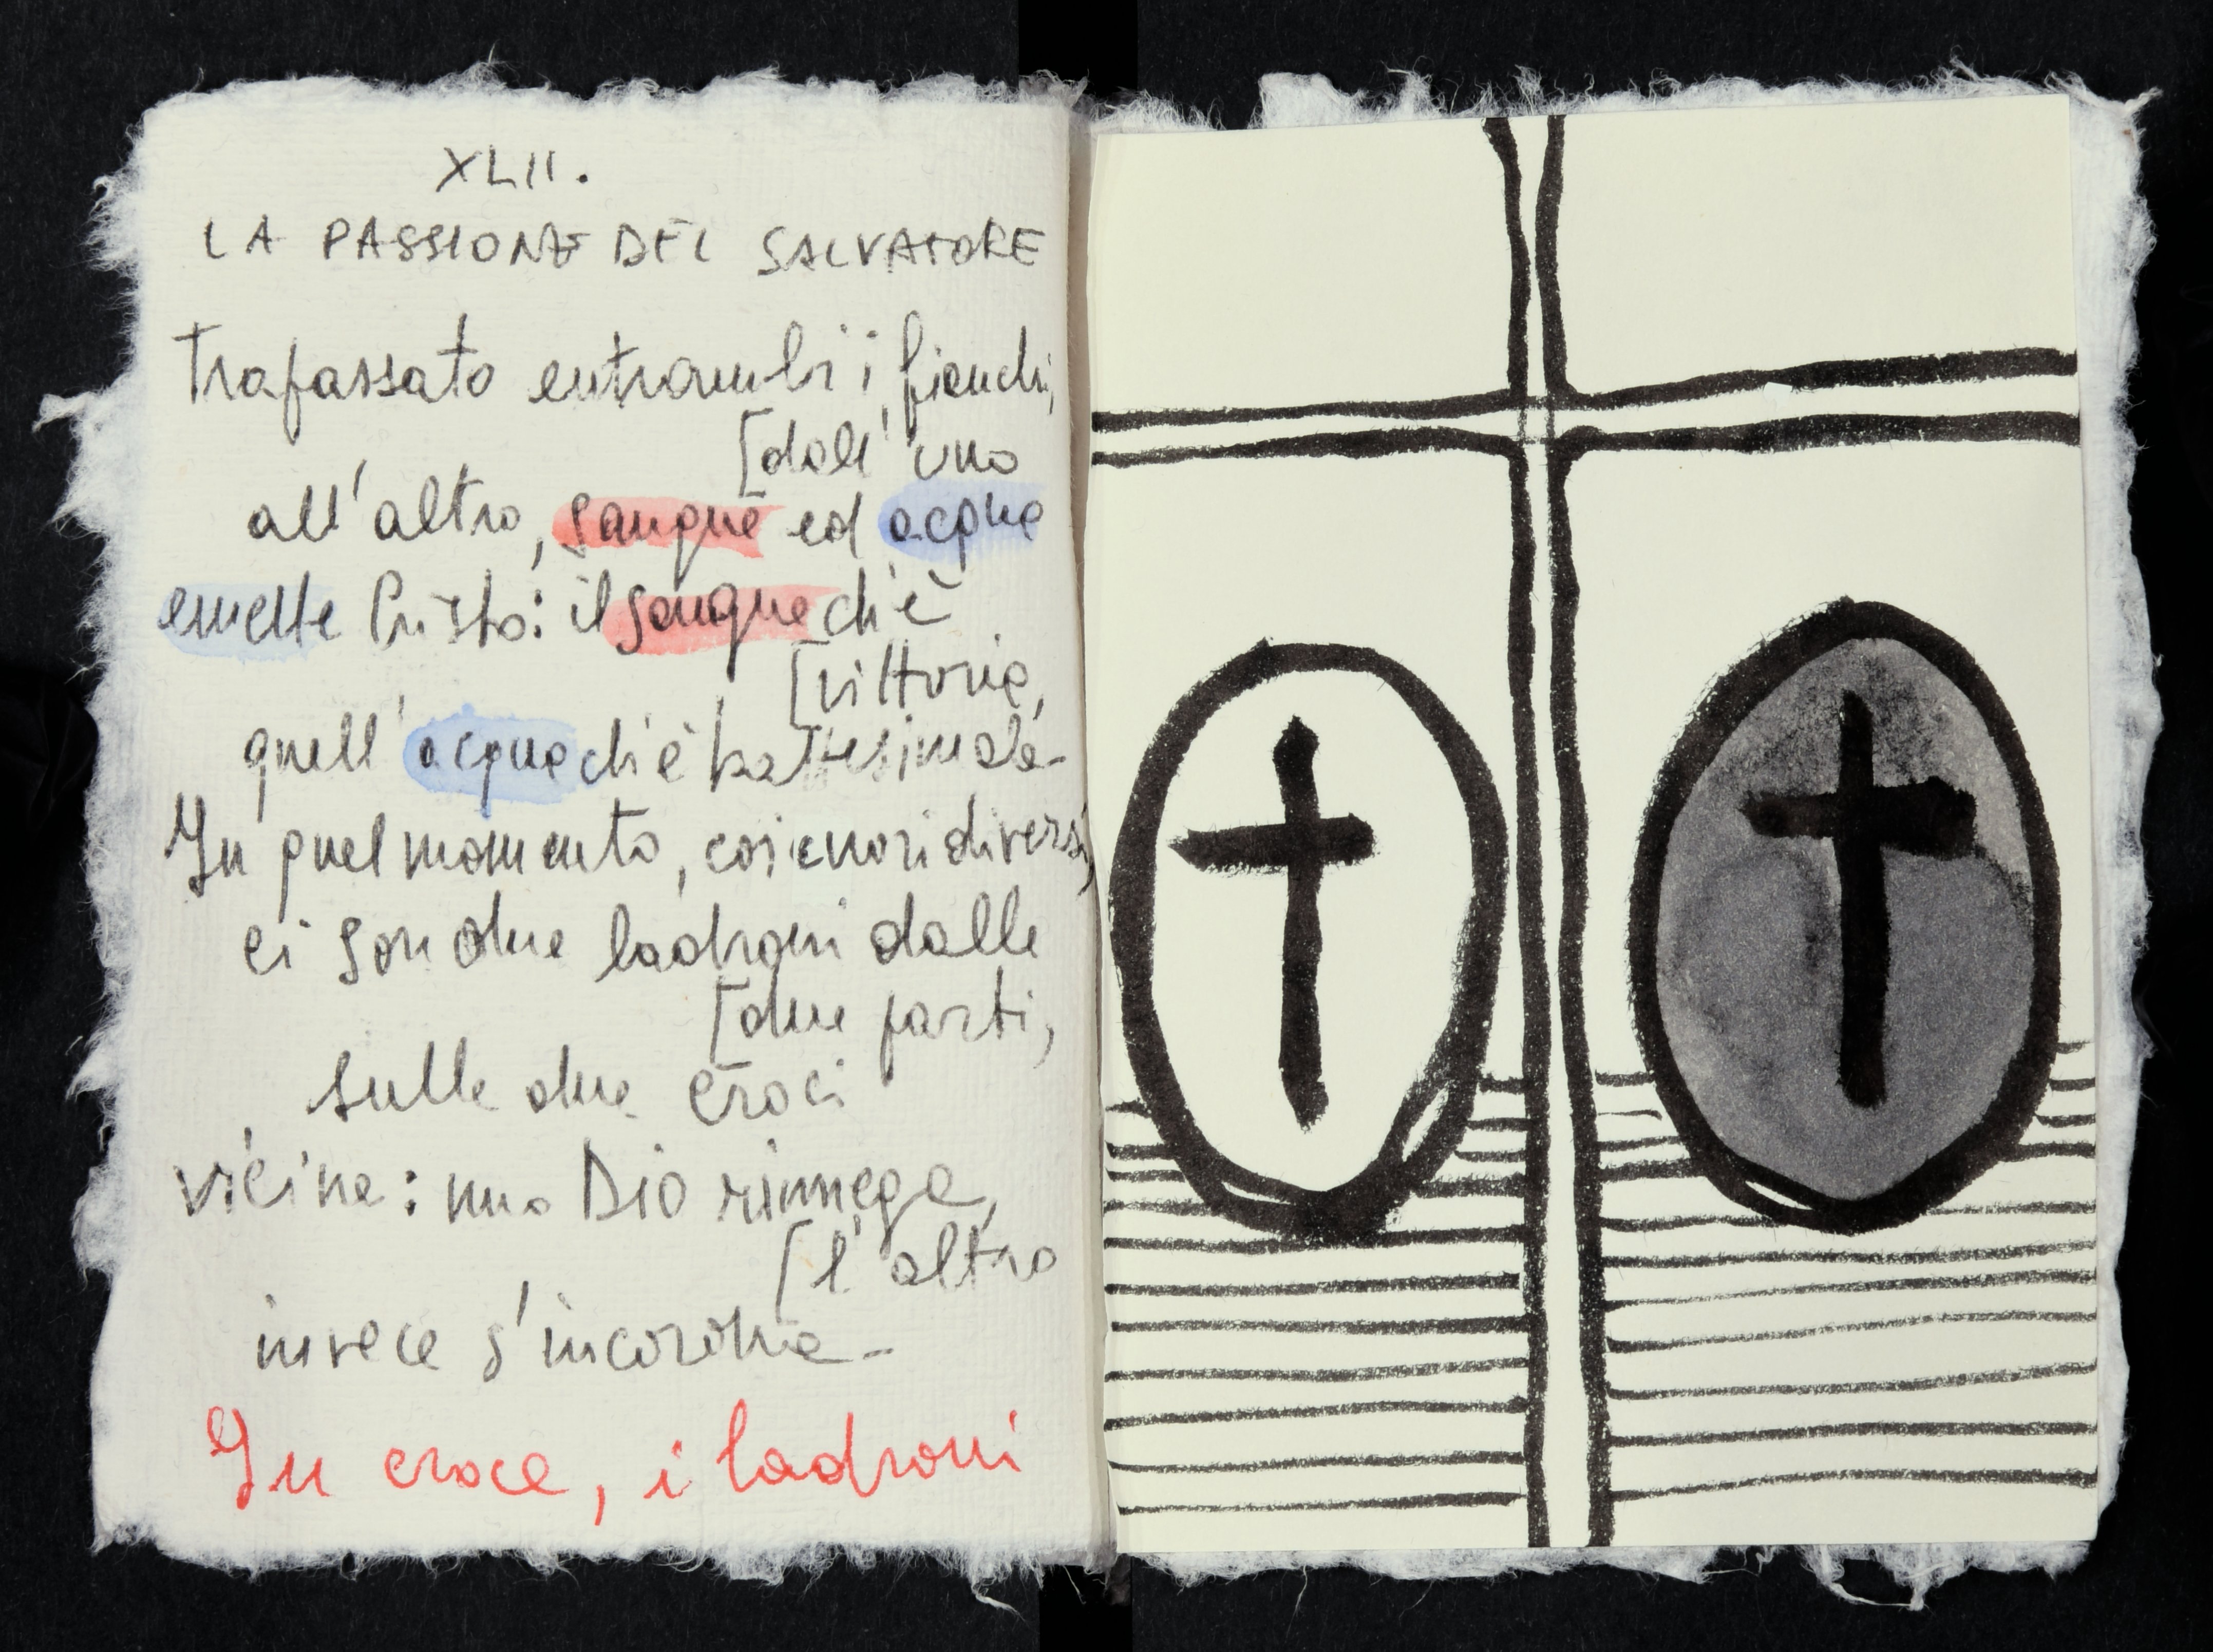 XLII.
LA PASSIONE DEL SALVATORE
Trapassato entrambi i fianchi,
[dall'uno
all'altro, sangue ed acqua
emette Cristo: il sangue ch'è
[vittoria,
quell'acqua ch'è battesimale.
In quel momento, coi cuori diversi,
ci son due ladroni dalle
[due parti,
sulle due croci
vicine: uno Dio rinnega,
[l'altro
invece s'incorona.
In croce, i ladroni